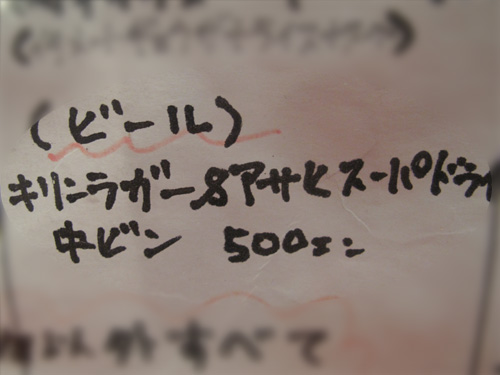 (ビール)
キリンラガー&アサヒスーパードライ
中ビン 500エン
以外すべて